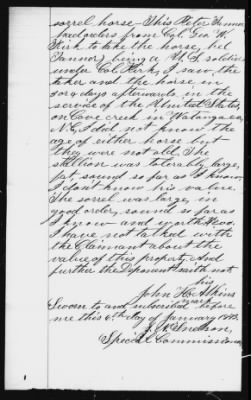 sorrel horse - This Peter Tanner
had orders from Col. Geo. W.
Kirk to take the horse, he (
Tanner) being a U.S. soldier
under Col. Kirk. I saw the
other and the horse in
3 or 4 days afterwards in the
service of the United States
on Cove creek in Watauga co,
N.C. I did not know the
age of either horse but
they were not old. The
stallion was tolerably large,
fat, sound so far as I know
I dont know his value.
The sorrel was large, in
good order, sound so far as
I know and worth $100.
I have not talked with
the Claimant about the
value of this property. And
further the Deponent saith not
his
John H. x Atkins
mark
Sworn to and subscribed before
me this 6th day of January 187
Special Commissioner